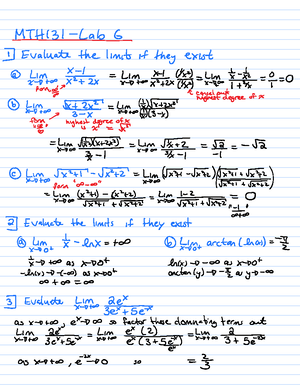 MTH131-Lab 6
1 Evaluate the limits if they exist
a) Lim x→+∞ (x-1)/(x²+2x) = Lim x→+∞ (x-1)/(x²+2x) (1/x²)/(1/x²) = Lim x→+∞ (1/x - 1/x²)/(1+2/x) = 0/1 = 0
highest degree of x
b) Lim x→+∞ √(x+2x²)/(3-x) = Lim x→+∞
highest degree of x
is x² = √x²
= Lim x→+∞ √((1/x²)(x+2x²))/(3/x -1) = Lim x→+∞ √(1/x+2)/(3/x-1) = √2/-1 = -√2
c) Lim x→+∞ √(x²+1) - √(x²+2) = Lim x→+∞ (√(x²+1) - √(x²+2)) (√(x²+1) + √(x²+2))/(√(x²+1) + √(x²+2))
form ∞-∞
= Lim x→+∞ ((x²+1) - (x²+2))/(√(x²+1) + √(x²+2)) = Lim x→+∞ (1-2)/(√(x²+1) + √(x²+2)) = 0
-1/(∞+∞)
2 Evaluate the limits if they exist
a) Lim x→0⁺ 1/x - lnx = +∞
b) Lim x→0⁺ arctan(lnx) = -π/2
1/x → +∞ as x→0⁺
lnx → -∞ as x→0⁺
-ln(x) → -(-∞) as x→0⁺
arctan(y) → -π/2 as y→-∞
∞ + ∞ = ∞
3 Evaluate Lim x→+∞ 2eˣ/(3eˣ+5e⁻ˣ)
as x→+∞, eˣ→∞ so factor these dominating terms out
Lim x→+∞ 2eˣ/(3eˣ+5e⁻ˣ) = Lim x→+∞ eˣ(2)/(eˣ(3+5e⁻ˣ/eˣ)) = Lim x→+∞ 2/(3+5e⁻²ˣ)
as x→+∞, e⁻²ˣ→0 so = 2/3